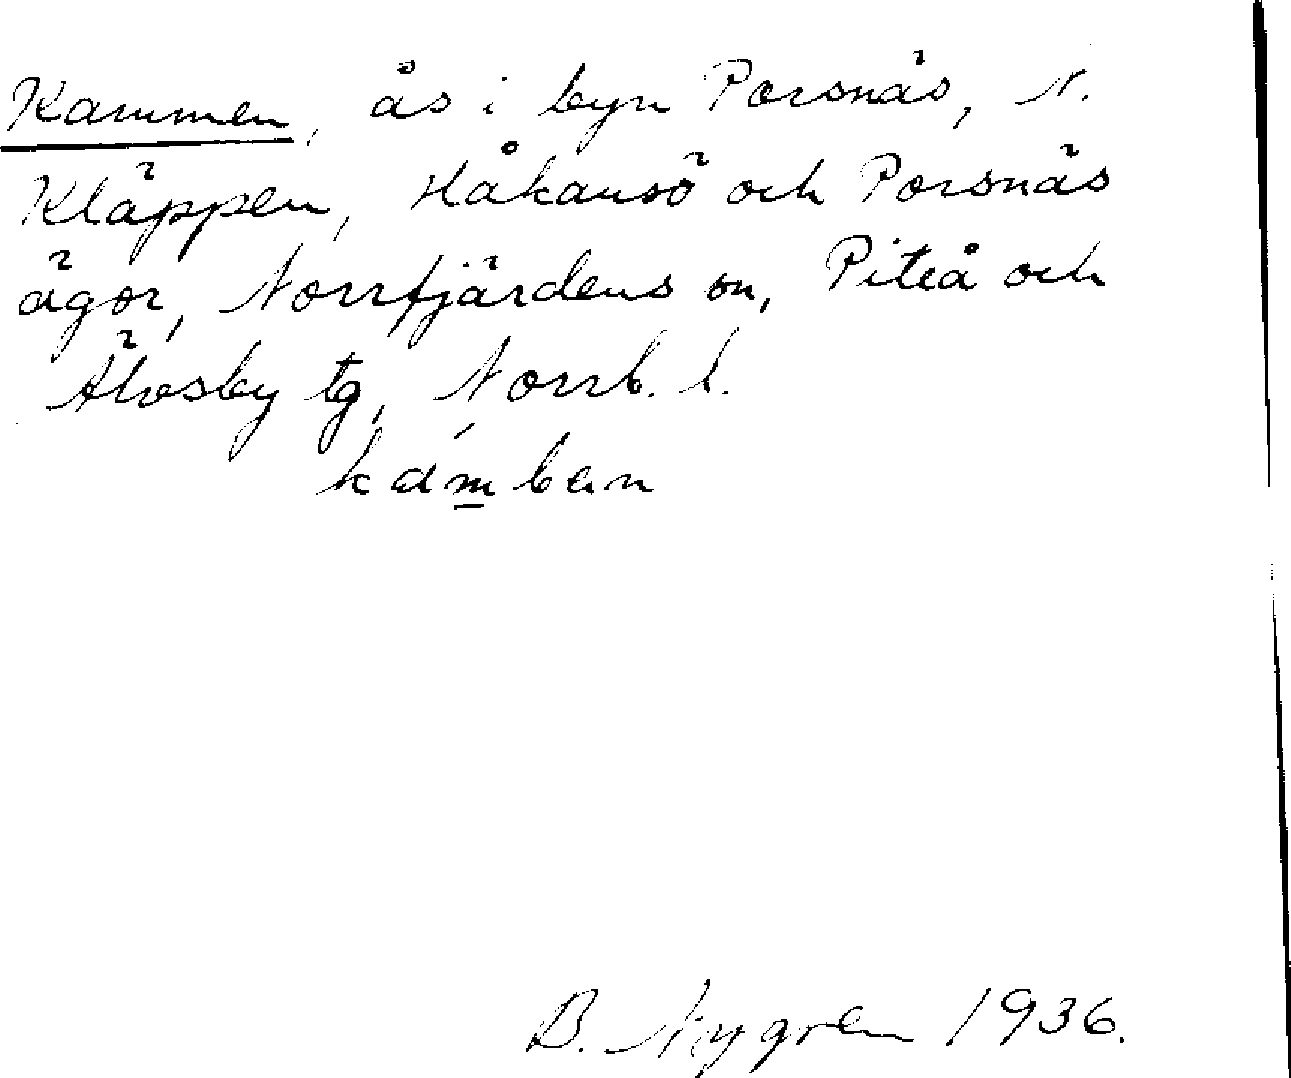 Kammen, ås i byn Porsnäs, N.
Kläppen, Håkansö och Porsnäs
ägor, Norrfjärdens sn, Piteå och
Älvsby tg, Norrb. l.
kámban
B. Nygren 1936.